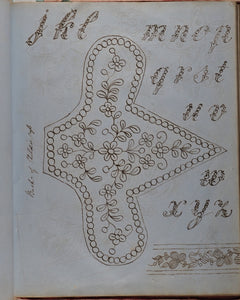 j k l m n o p
q r s t
u v
w
x y z